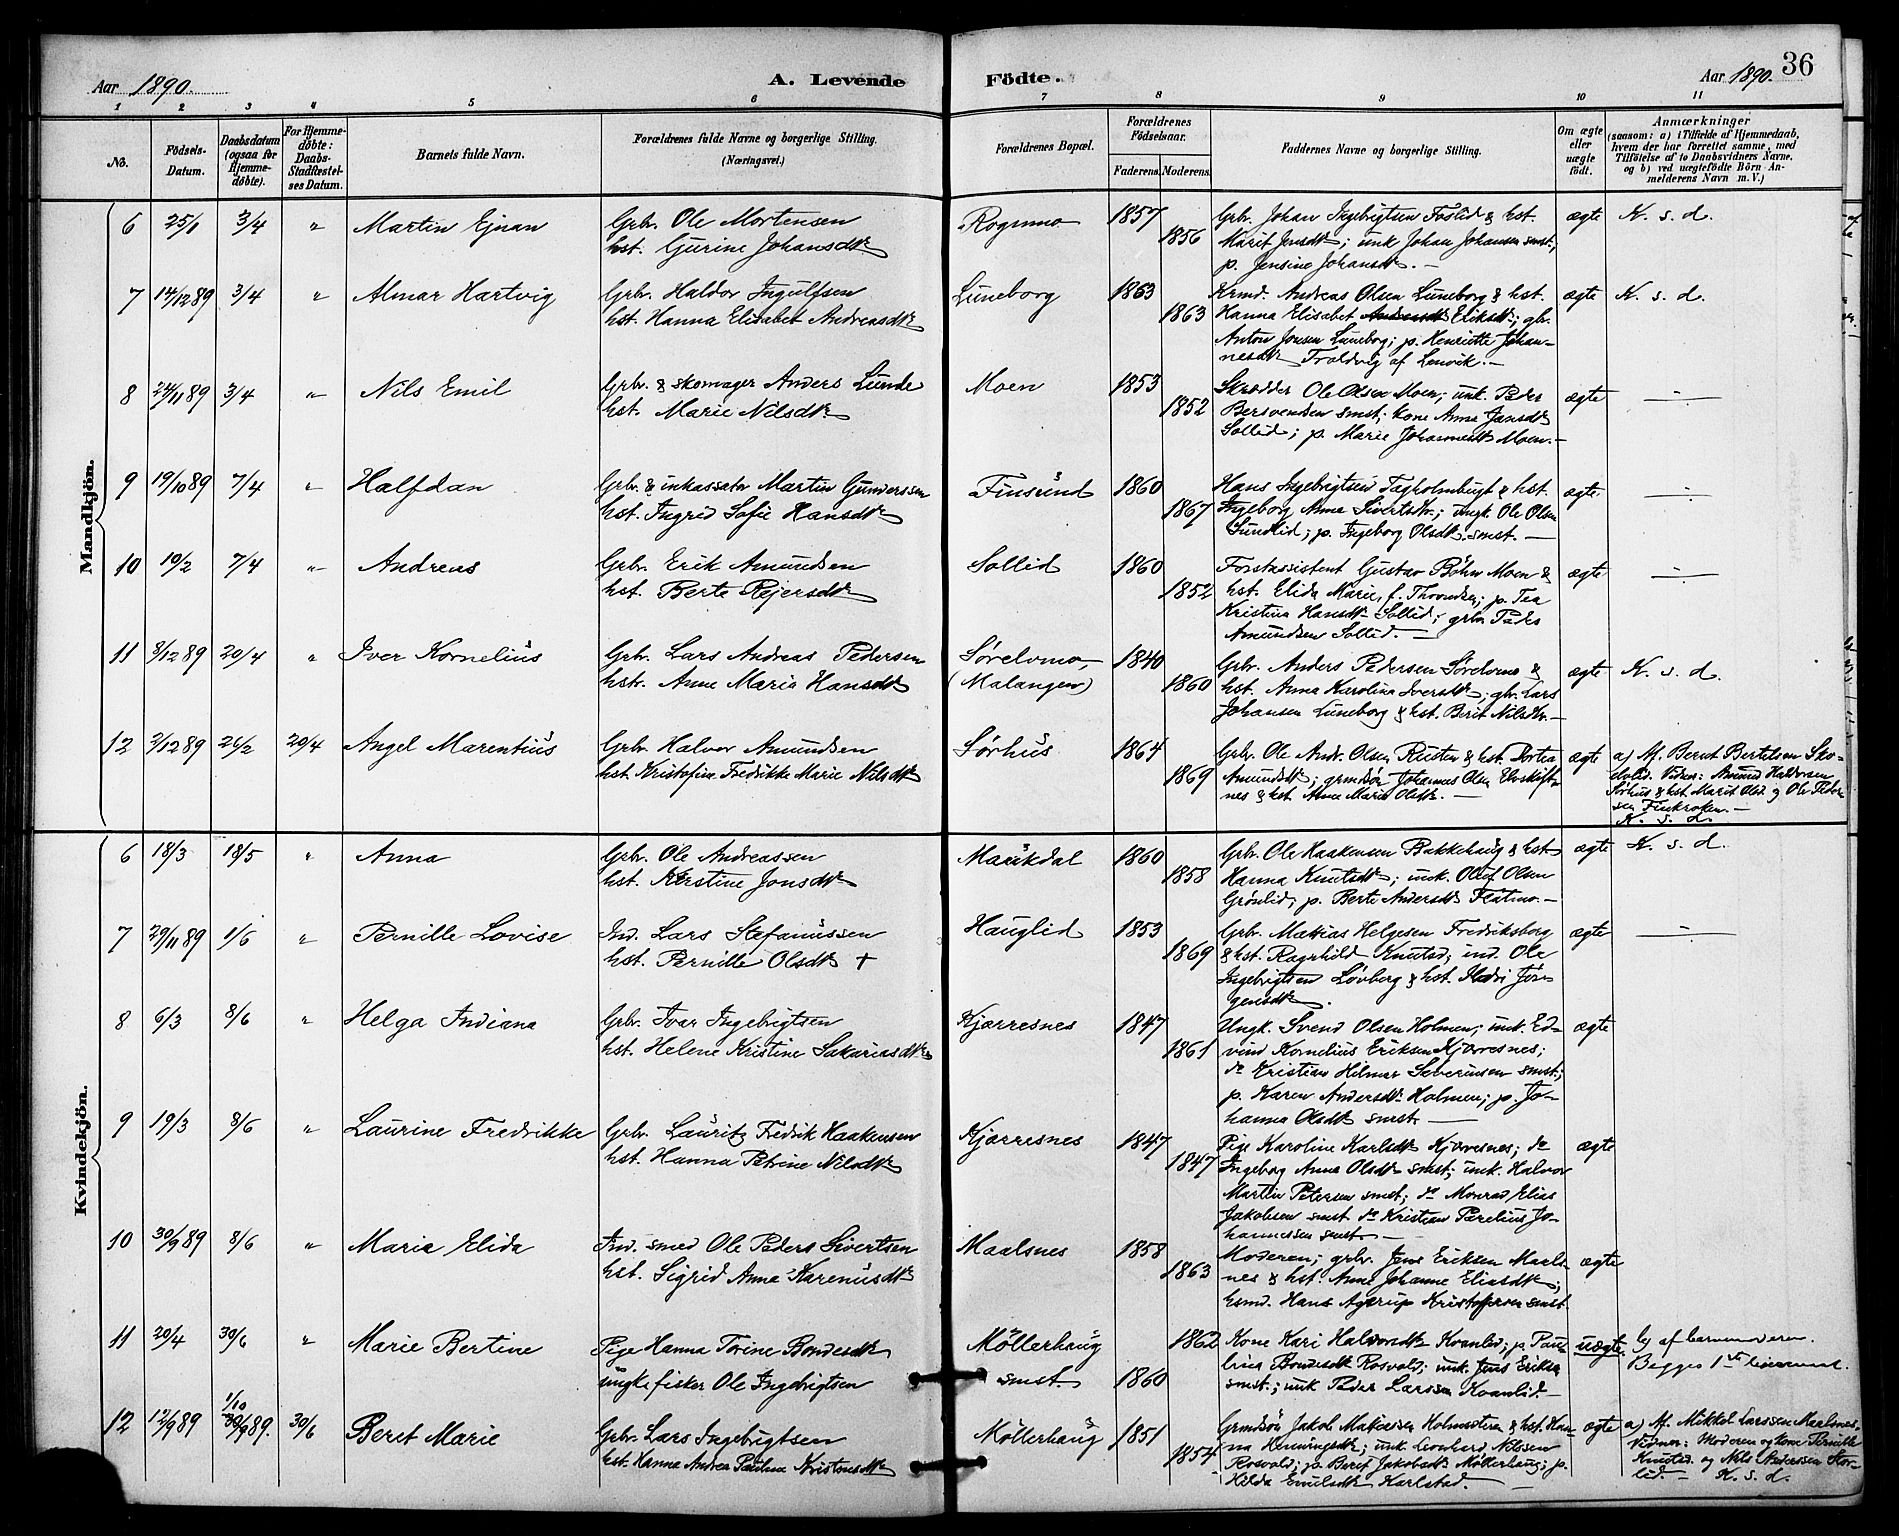 Aar 1890.
A. Levende Födte.
Aar 1890.
36
1 2 3 4 5 6 7 8 9 10 11
No.
Födsels-Datum.
Daabsdatum (ogsaa for Hjemme-döbte).
For Hjemme-döbte: Daabs-Stadfæstel-ses Datum.
Barnets fulde Navn.
Forældrenes fulde Navne og borgerlige Stilling.
(Næringsvei.)
Forældrenes Bopæl.
Forældrenes Födselsaar.
Faderens. Moderens.
Faddernes Navne og borgerlige Stilling.
Om ægte eller uægte födt.
Anmærkninger
(saasom: a) i Tilfælde af Hjemmedaab,
hvem der har forrettet samme, med
Tilföielse af to Daabsvidners Navne,
og b) ved uægtefödte Börn An-
melderens Navn m. V.)
Mandkjön.
6 25/1 3/4 " Martin Ejnan
Grbr. Ole Mortensen
hst. Gurine Johansdtr
Rognmo 1857 1856
Grbr. Johan Ingebrigtsen Foslid & hst.
Marit Jensdtr; unk Johan Johansen smst;
p. Jensine Johansdtr. —
ægte K. s. d.
7 14/12 89 3/4 " Almar Hartvig
Grbr. Haldor Ingulfsen
hst. Hanna Elisabet Andreasdtr
Luneborg 1863 1863
Krmd. Andreas Olsen Luneborg & hst.
Hanna Elisabet Eriksdtr; gbr.
Anton Jensen Luneborg; p. Henriette Johan-
nesdtr Troldvig af Lenvik. —
ægte K. s. d.
8 24/11 89 3/4 " Nils Emil
Grbr. & skomager Anders Lunde
hst. Marie Nilsdtr
Moen 1853 1852
Skrædder Ole Olsen Moen; unk. Peder
Bersvendsen smst; kone Anne Jensdtr
Sollid; p. Marie Johannesdtr Moen. —
ægte —"—
9 19/10 89 7/4 " Halfdan
Grbr. & inkassator Martin Gunderssen
hst. Ingrid Sofie Hansdtr
Finsund 1860 1867
Hans Ingebrigtsen Tagholmbugt & hst.
Ingeborg Anna Sivertsdtr; ungk. Ole Olsen
Sundlid; p. Ingeborg Olsdtr smst. —
ægte —"—
10 19/2 7/4 " Andreas
Grbr. Erik Amundsen
hst. Berte Rejersdtr
Sollid 1860 1852
Forstassistent Gustav Bøhn Moen &
hst. Elida Marie, f. Throndsen; p. Tea
Kristina Hansdtr Sollid; grbr Peder
Amundsen Sollid. —
ægte —"—
11 3/12 89 20/4 " Iver Kornelius
Grbr. Lars Andreas Pedersen
hstr. Anne Maria Hansdtr
Sørelvmo, (Malangen) 1840 1860
Grbr. Anders Pedersen Sørelvmo &
hst. Anna Karolina Iversdtr; gbr. Lars
Johansen Luneborg & hst. Berit Nilsdtr. —
ægte K. s. d.
12 2/12 89 26/2 20/4 Angel Marentius
Grbr. Halvor Amundsen
hst. Kristofine Fredrikke Marie Nilsdtr
Sørhus 1864 1869
Grbr. Ole Andr. Olsen Rusten & hst. Dortea
Amundsdtr; grmdsøn Johannes Olsen Elvskift-
nes & hst. Anne Marie Olsdtr. —
ægte a) Af. Bernt Bertelsen Sko-
elvlid. Vidner: Amund Haldorsen
Sørhus & hst. Marit Olsd. og Ole Peder-
sen Finkroken. —
K. s. d.
Kvindekjön.
6 18/3 18/5 " Anna
Grbr. Ole Andreassen
hst. Kerstine Jonsdtr
Maukdal 1860 1858
Grbr. Ole Haakensen Bakkehaug & hst
Hanna Knutsdtr; unk. Oluf Olsen
Grönlid; p. Berte Andersdtr Flatmo. —
ægte K. s. d.
7 29/11 89 1/6 " Pernille Lovise
Ind. Lars Stefanussen
hst. Pernille Olsdtr +
Hauglid 1853 1869
Grbr. Matias Helgesen Fredriksberg
& hst. Ragnhild Knutsd; ind. Ole
Ingebrigtsen Løvberg & hst. Jör-
gensdtr.
ægte —"—
8 6/3 8/6 " Helga Indiana
Grbr. Ivar Ingebrigtsen
hst. Helene Kristine Sakariasdtr
Kjærresnes 1847 1861
Ungk. Svend Olsen Holmen; unk. Ed-
vind Kornelius Eriksen Kjærresnes;
do Kristian Hilmar Severinsen smst;
p. Karen Andersdtr Holmen; p. Jo-
hanna Olsdtr smst. —
ægte
9 19/3 8/6 " Laurine Fredrikke
Grbr. Lauritz Fredrik Haakensen
hst. Hanna Petrine Nilsdtr
Kjærresnes 1847 1847
Pige Karoline Karlsdtr Kjærresnes; do
Ingeborg Anna Olsdtr smst; unk. Halvor
Martin Petersen smst; do Monrad Elias
Jakobsen smst do Kristian Parelius Jo-
hannessen smst. —
ægte
10 30/9 89 8/6 " Marie Elida
Ind. smed Ole Peder Sivertsen
hst. Sigrid Anna Karenusdtr
Maalsnes 1858 1863
Moderen; grbr. Jens Eriksen Maals-
nes & hst. Anne Johanne Eliasdtr;
husmd. Hans Agerup Kristofersen smst
ægte
11 20/4 30/6 " Marie Bertine
Pige Hanna Torine Bendesdtr
ungk fisker Ole Ingebrigtsen
Möllerhaug smst. 1862 1860
Kone Kari Halvorsdtr Kvanlid; p. Pau-
lina Bendesdtr Rosvold; unk. Jens Eriksen
smst.; unk Peder Larssen Kvanlid. —
uægte b) af barnemoderen.
Begges 1ste leiermaal.
12 12/9 89 1/10 30/9 89. 30/6 Beret Marie
Grbr. Lars Ingebrigtsen
hst. Hanna Andrea Paulina Kristensdtr
Möllerhaug 1851 1854
Grmdsön Jakob Matiassen Holmesteen & hst. Han-
na Henningsdtr; unk Leonhard Nilssen
Rosvold; p. Berit Jakobsdtr Möllerhaug; p.
Hilda Emelsdtr Karlstad. —
ægte a) Af. Mikkel Larssen Maalsnes.
Vidner: Moderen og kone Pernille
Knutsd. og Nils Anderssen Stor-
lid. — K. s. d.